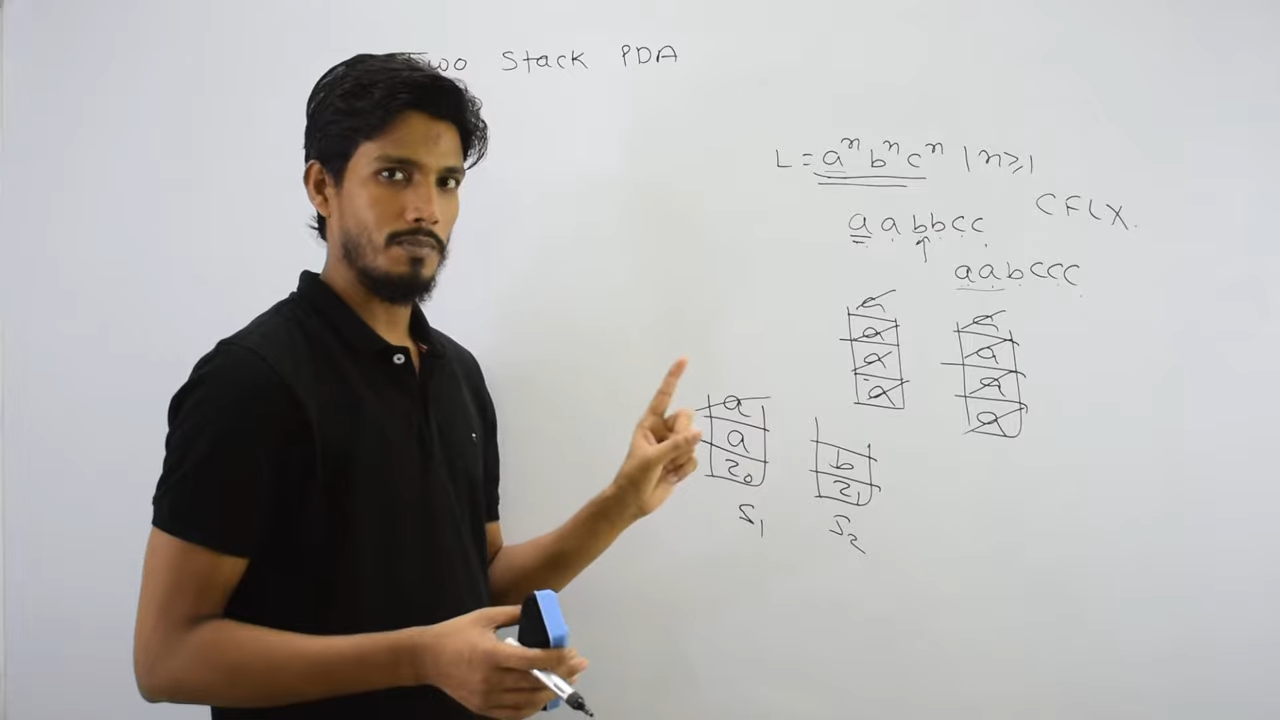 Two Stack PDA
L = aⁿ bⁿ cⁿ | n ≥ 1
CFL X
a a b b c c
a a b c c c
a a
a a
a a
a a
a
a b
z₀ z₁
S₁ S₂